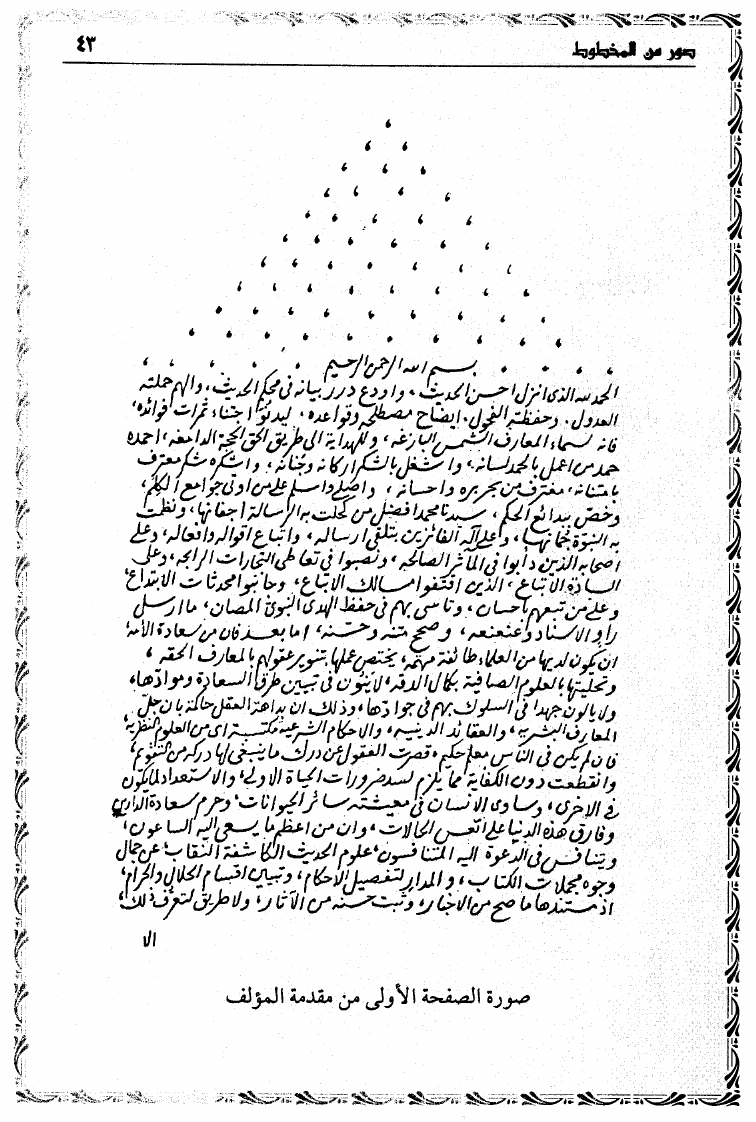 صور من المخطوط
٤٣
بسم الله الرحمن الرحيم
الحمد لله الذي انزل احسن الحديث، واودع درر بيانه في محكم الحديث، والهم حملته
العدول، وحفظته الفحول، ايضاح مصطلحه وقواعده، ليدنو اجتناء ثمرات فوائده،
فانه لسماء المعارف الشمس البازغه، وللهداية الى طريق الحق الحجة الدامغه، احمده
حمد من اعمل بالحمد لسانه، واشغل بالشكر اركانه وجنانه، واشكره شكر معترف
بامتنانه، مغترف من بحر بره واحسانه، واصلي واسلم على من اوتي جوامع الكلم،
وخص ببدائع الحكم، سيدنا محمد افضل من كحلت به الرسالة اجفانها، ونظمت
به النبوة جمانها، وعلى آله الفائزين بتلقي ارساله، واتباع اقواله وافعاله، وعلى
اصحابه الذين دابوا في المآثر الصالحه، ونصبوا في تعاطي التجارات الرابحه، وعلى
السادة الاتباع، الذين اقتفوا مسالك الاتباع، وجانبوا محدثات الابتداع،
وعلى من تبعهم باحسان، وتاسى بهم في حفظ الهدى النبوي المصان، ما ارسل
راو الاسناد وعنعنه، وصحح متنه وحسنه، اما بعد فان من سعادة الامه،
ان يكون لديها من العلماء طائفة مهمه، يختص عملها بتنوير عقولهم بالمعارف الحقه،
وتحليتها بالعلوم الصافية بكمال الدقه، لا ينون في تبيين طرق السعادة وموادها،
ولا يالون جهدا في السلوك بهم في جوادها، وذلك ان بداهة العقل حاكمة بان جل
المعارف البشريه، والعقائد الدينيه، والاحكام الشرعيه مكتسبة اي من العلوم النظريه
فان لم يكن في الناس معلم حكيم، قصرت العقول عن درك ما ينبغي لها دركه من التقويم،
وانقطعت دون الكفاية مما يلزم لسد ضرورات الحياة الاولى، والاستعداد لما يكون
في الاخرى، وساوى الانسان في معيشته سائر الحيوانات، وحرم سعادة الدارين
وفارق هذه الدنيا على اتعس الحالات، وان من اعظم ما يسعى اليه الساعون،
ويتنافس في الدعوة اليه المتنافسون، علوم الحديث الكاشفة النقاب، عن جمال
وجوه مجملات الكتاب، والمدار لتفصيل الاحكام، وتبيين اقسام الحلال والحرام،
اذ مستندها ما صح من الاخبار، وثبت حسنه من الآثار، ولا طريق لتعرف ذلك،
الا
صورة الصفحة الأولى من مقدمة المؤلف